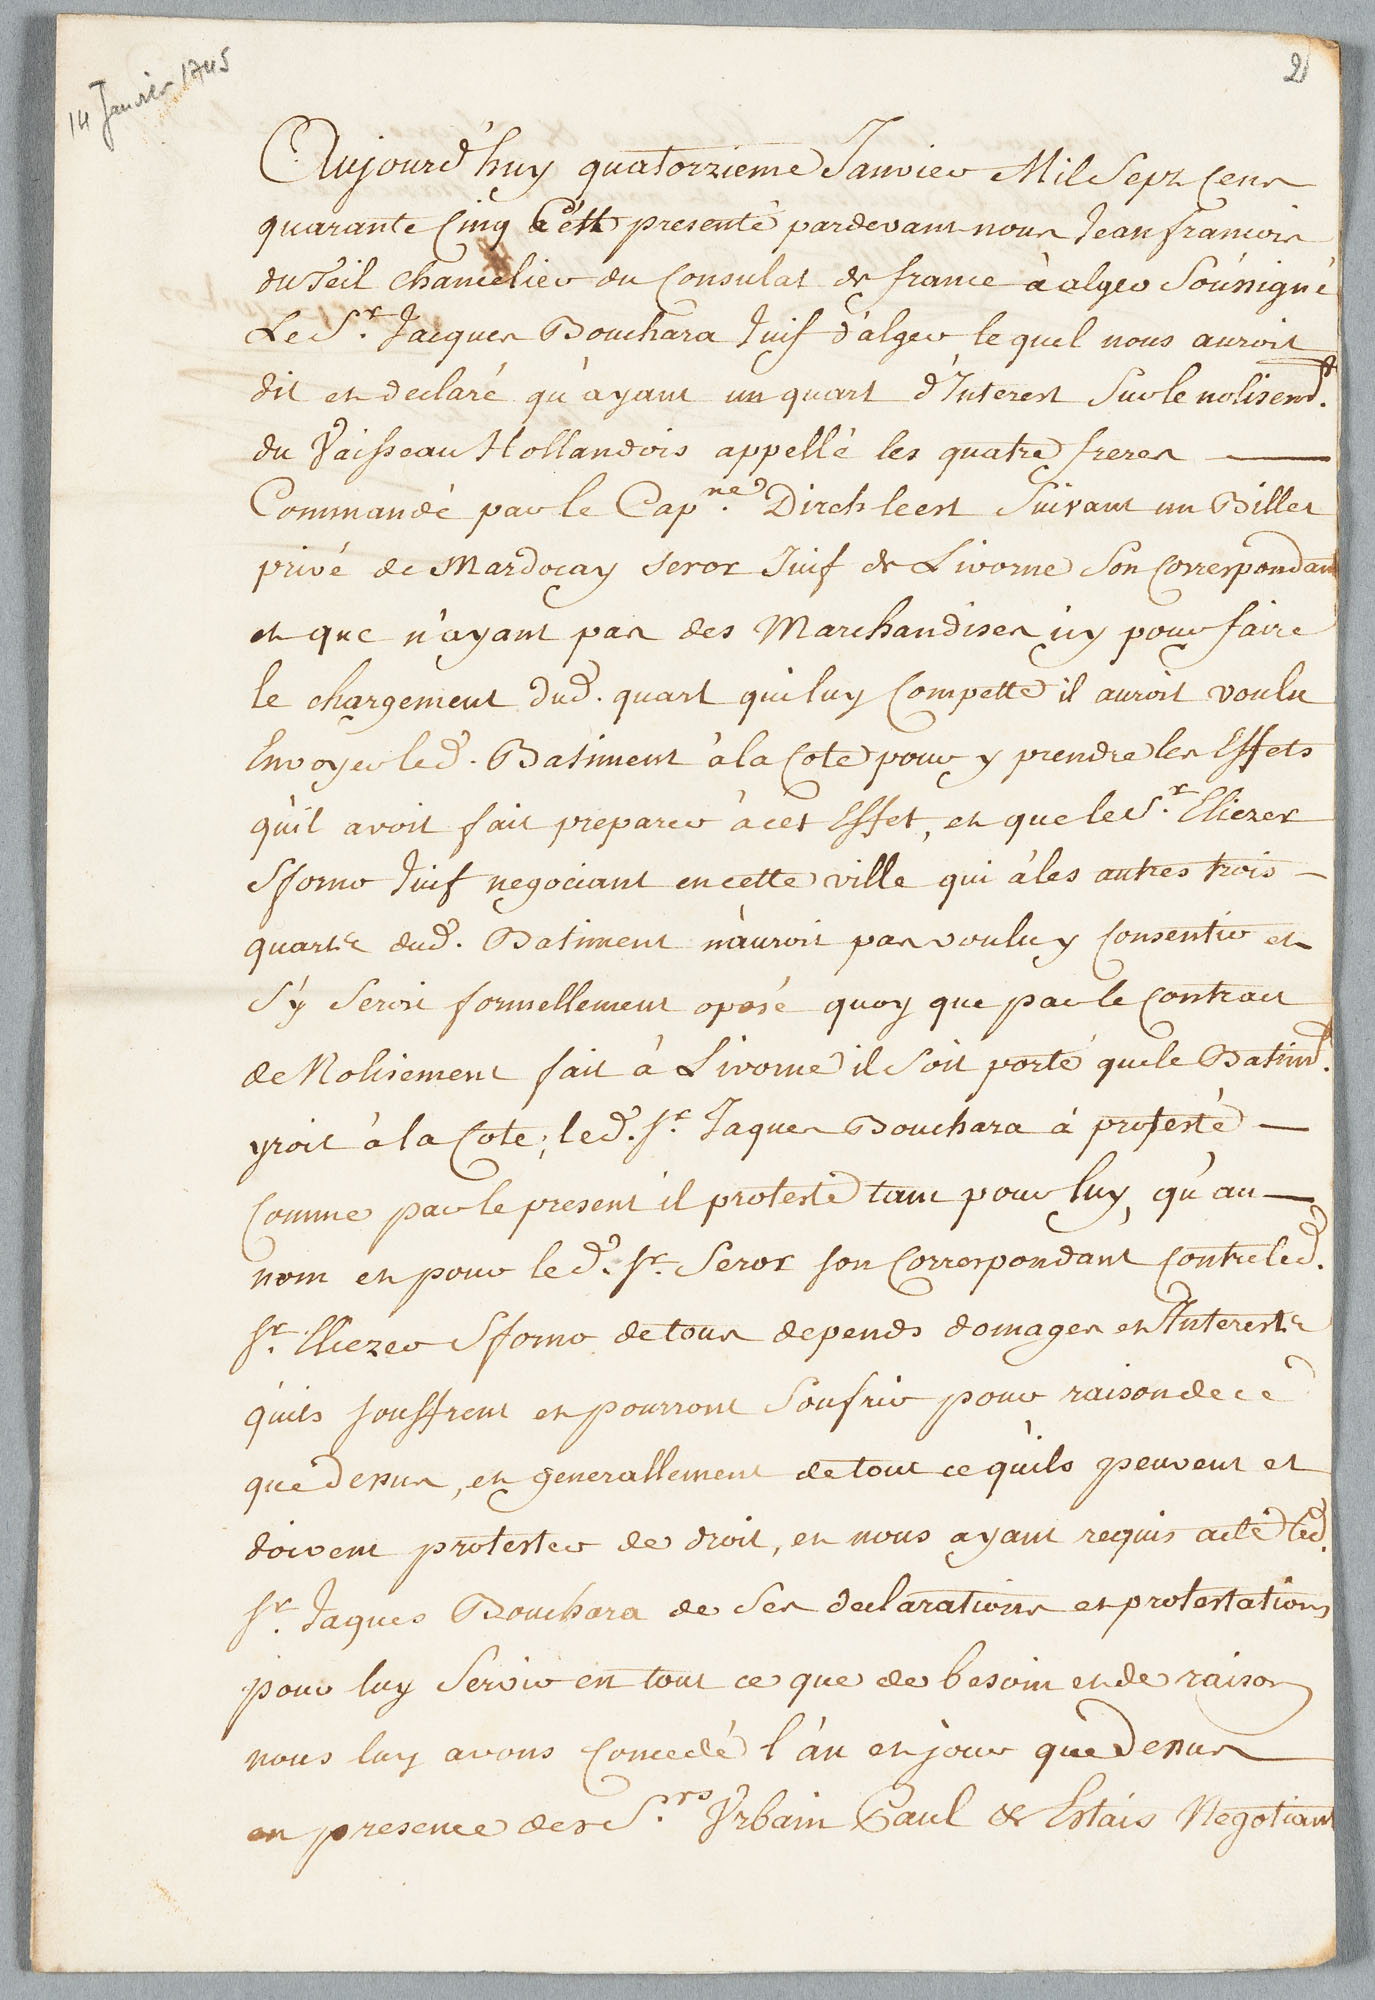 14 Janvier 1745
2
Aujourd'huy quatorzieme Janvier Mil Sept Cens
quarante Cinq C'est presenté pardevant nous Jean francois
du Teil Chancelier du Consulat de france à alger Soussigné
Le S.r Jacques Bouchara Juif d'alger le quel nous auroit
dit et declaré qu'ayant un quart d'Interest Sur le nolisem.t
du Vaisseau Hollandois appellé les quatre freres
Commandé par le Cap.ne Dirck leest Suivant un Billet
privé de Mardocay seror Juif de Livorne Son Correspondant
et que n'ayant pas des Marchandises icy pour faire
le chargement dud. quart qui luy Compette il auroit voulu
Envoyer led. Batiment à la Cote pour y prendre les Effets
qu'il avoit fait preparer à cet Effet, et que le S.r Eliezer
Sforno Juif negociant en cette ville qui à les autres trois
quarts dud. Batiment n'auroit pas voulu y Consentir et
S'y Seroit formellement oposé quoy que par le Contract
de Nolisement fait à Livorne il Soit porté que le Batim.t
yroit à la Cote; led. Sr. Jaques Bouchara à protesté
Comme par le present il proteste tant pour luy, qu'au
nom et pour led. Sr. Seror son Correspondant Contre led.
Sr. Eliezer Sforno de tous depends domages et Interests
quils souffrent et pourront Soufrir pour raison de ce
que dessus, et generallement de tout ce qu'ils peuvent et
doivent protester de droit, et nous ayant requis acte led.
Sr. Jaques Bouchara de Ses declarations et protestations
pour luy Servir en tout ce que de besoin et de raison
nous luy avons Concedé l'an et jour que dessus
en presence des S.rs Urbain Paul & Estais Negotiants